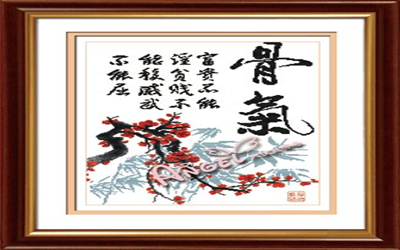 骨氣
富贵不能
淫贫贱不
能移威武
不能屈